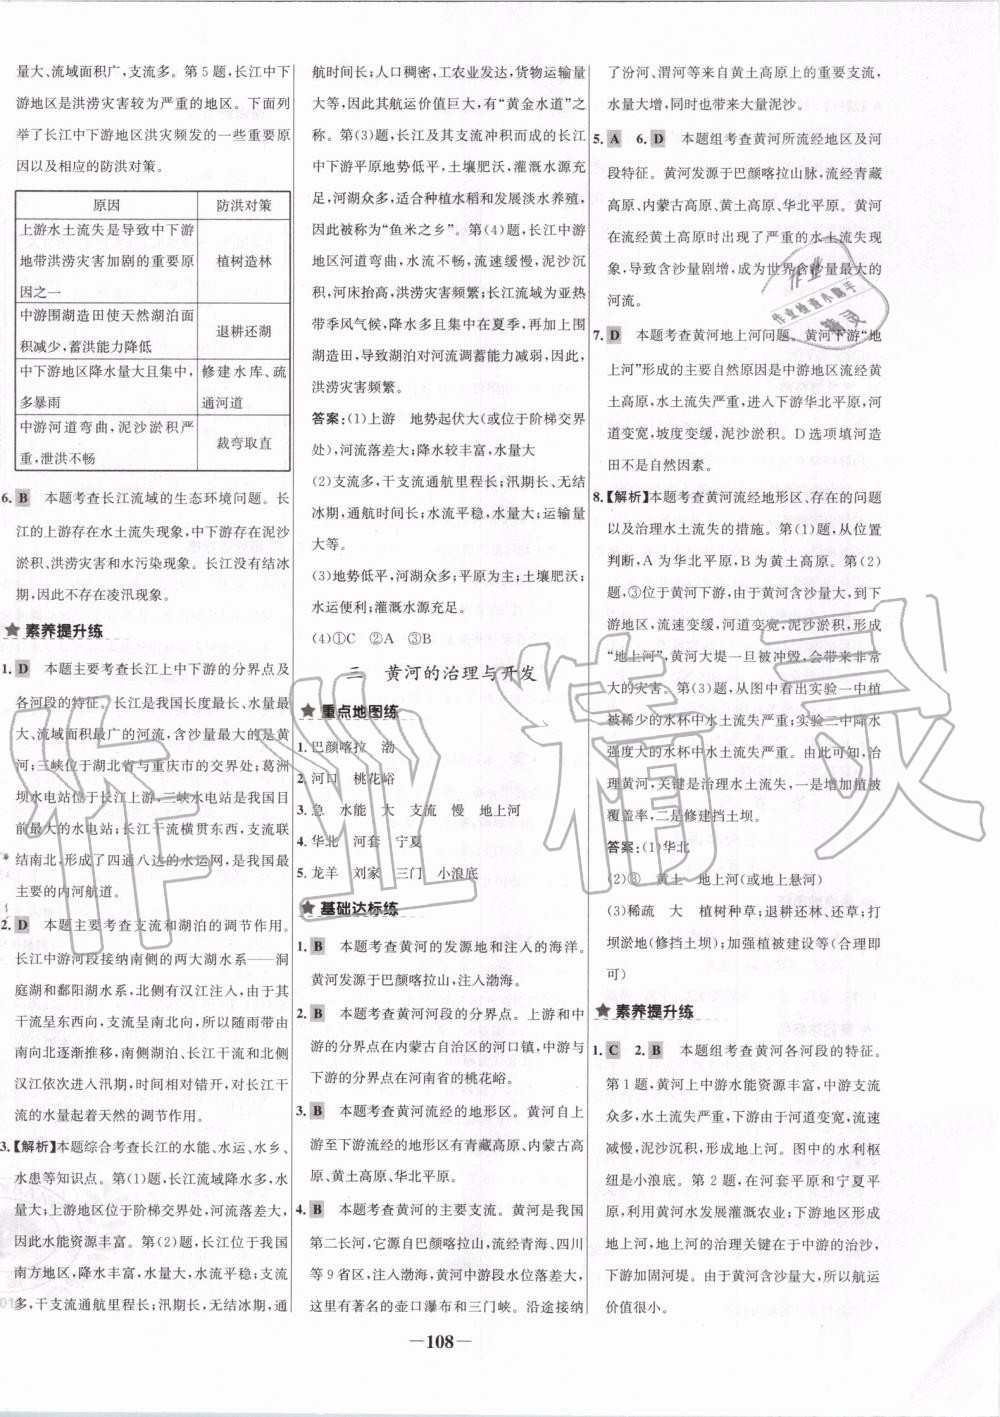 量大、流域面积广,支流多。第5题,长江中下
游地区是洪涝灾害较为严重的地区。下面列
举了长江中下游地区洪灾频发的一些重要原
因以及相应的防洪对策。
原因 防洪对策
上游水土流失是导致中下游
地带洪涝灾害加剧的重要原
因之一
植树造林
中游围湖造田使天然湖泊面
积减少,蓄洪能力降低
退耕还湖
中下游地区降水量大且集中,
多暴雨
修建水库、疏
通河道
中游河道弯曲,泥沙淤积严
重,泄洪不畅
裁弯取直
6. B 本题考查长江流域的生态环境问题。长
江的上游存在水土流失现象,中下游存在泥沙
淤积、洪涝灾害和水污染现象。长江没有结冰
期,因此不存在凌汛现象。
★ 素养提升练
1. D 本题主要考查长江上中下游的分界点及
各河段的特征。长江是我国长度最长、水量最
大、流域面积最广的河流,含沙量最大的是黄
河;三峡位于湖北省与重庆市的交界处;葛洲
坝水电站位于长江上游,三峡水电站是我国目
前最大的水电站;长江干流横贯东西,支流联
结南北,形成了四通八达的水运网,是我国最
主要的内河航道。
2. D 本题主要考查支流和湖泊的调节作用。
长江中游河段接纳南侧的两大湖水系——洞
庭湖和鄱阳湖水系,北侧有汉江注入,由于其
干流呈东西向,支流呈南北向,所以随雨带由
南向北逐渐推移,南侧湖泊、长江干流和北侧
汉江依次进入汛期,时间相对错开,对长江干
流的水量起着天然的调节作用。
3.【解析】本题综合考查长江的水能、水运、水乡、
水患等知识点。第(1)题,长江流域降水多,水
量大;上游地区位于阶梯交界处,河流落差大,
因此水能资源丰富。第(2)题,长江位于我国
南方地区,降水丰富,水量大,水流平稳;支流
多,干支流通航里程长;汛期长,无结冰期,通
航时间长;人口稠密,工农业发达,货物运输量
大等,因此其航运价值巨大,有“黄金水道”之
称。第(3)题,长江及其支流冲积而成的长江
中下游平原地势低平,土壤肥沃,灌溉水源充
足,河湖众多,适合种植水稻和发展淡水养殖,
因此被称为“鱼米之乡”。第(4)题,长江中游
地区河道弯曲,水流不畅,流速缓慢,泥沙沉
积,河床抬高,洪涝灾害频繁;长江流域为亚热
带季风气候,降水多且集中在夏季;人们过多
围湖造田,导致湖泊对河流调蓄能力减弱,因此,
洪涝灾害频繁。
答案:(1)上游 地势起伏大(或位于阶梯交界
处),河流落差大;降水较丰富,水量大
(2)支流多,干支流通航里程长;汛期长、无结
冰期,通航时间长;水流平稳,水量大;运输量
大等。
(3)地势低平,河湖众多;平原为主;土壤肥沃;
水运便利;灌溉水源充足。
(4)①C ②A ③B
二 黄河的治理与开发
★ 重点地图练
1. 巴颜喀拉 渤
2. 河口 桃花峪
3. 急 水能 大 支流 慢 地上河
4. 华北 河套 宁夏
5. 龙羊 刘家 三门 小浪底
★ 基础达标练
1. B 本题考查黄河的发源地和注入的海洋。
黄河发源于巴颜喀拉山,注入渤海。
2. B 本题考查黄河河段的分界点。上游和中
游的分界点在内蒙古自治区的河口镇,中游与
下游的分界点在河南省的桃花峪。
3. B 本题考查黄河流经的地形区。黄河自上
游至下游流经的地形区有青藏高原、内蒙古高
原、黄土高原、华北平原。
4. B 本题考查黄河的主要支流。黄河是我国
第二长河,它源自巴颜喀拉山,流经青海、四川
等9省区,注入渤海,黄河中游段水能丰富,在
这里有著名的壶口瀑布和三门峡。沿途接纳
了汾河、渭河等来自黄土高原上的重要支流,
水量大增,同时也带来大量泥沙。
5. A 6. D 本题组考查黄河所流经地区及河
段特征。黄河发源于巴颜喀拉山脉,流经青藏
高原、内蒙古高原、黄土高原、华北平原。黄河
在流经黄土高原时出现了严重的水土流失现
象,导致含沙量剧增,成为世界含沙量最大的
河流。
7. D 本题考查黄河地上河问题。黄河下游“地
上河”形成的主要自然原因是中游地区流经黄
土高原,水土流失严重,进入下游华北平原,河
道变宽,坡度变缓,泥沙淤积。D选项填河造
田不是自然因素。
8.【解析】本题考查黄河流经地形区、存在的问题
以及治理水土流失的措施。第(1)题,从位置
判断,A为华北平原,B为黄土高原。第(2)
题,③位于黄河下游,由于黄河含沙量大,到下
游流速变缓,河道变宽,泥沙淤积,形成
“地上河”,黄河大堤一旦被冲毁,会带来非常
大的灾害。第(3)题,从图中看出实验一中植
被稀少的水杯中水土流失严重;实验二中降水
强度大的水杯中水土流失严重。由此可知,治
理黄河,关键是治理水土流失,一是增加植被
覆盖率,二是修建挡土坝。
答案:(1)华北
(2)③ 黄土 地上河(或地上悬河)
(3)稀疏 大 植树种草;退耕还林、还草;打
坝淤地(修挡土坝);加强植被建设等(合理即
可)
★ 素养提升练
1. C 2. B 本题组考查黄河各河段的特征。
第1题,黄河上中游水能资源丰富,中游支流
众多,水土流失严重,下游由于河道变宽,流速
减慢,泥沙沉积,形成地上河。图中的水利枢
纽是小浪底。第2题,在河套平原和宁夏平
原,利用黄河水发展灌溉农业;下游泥沙淤积形成
地上河,地上河的治理关键在于中游的治沙,
下游加固河堤。由于黄河含沙量大,所以航运
价值很小。
—108—
作业
作业检查小助手
精灵
作业精灵